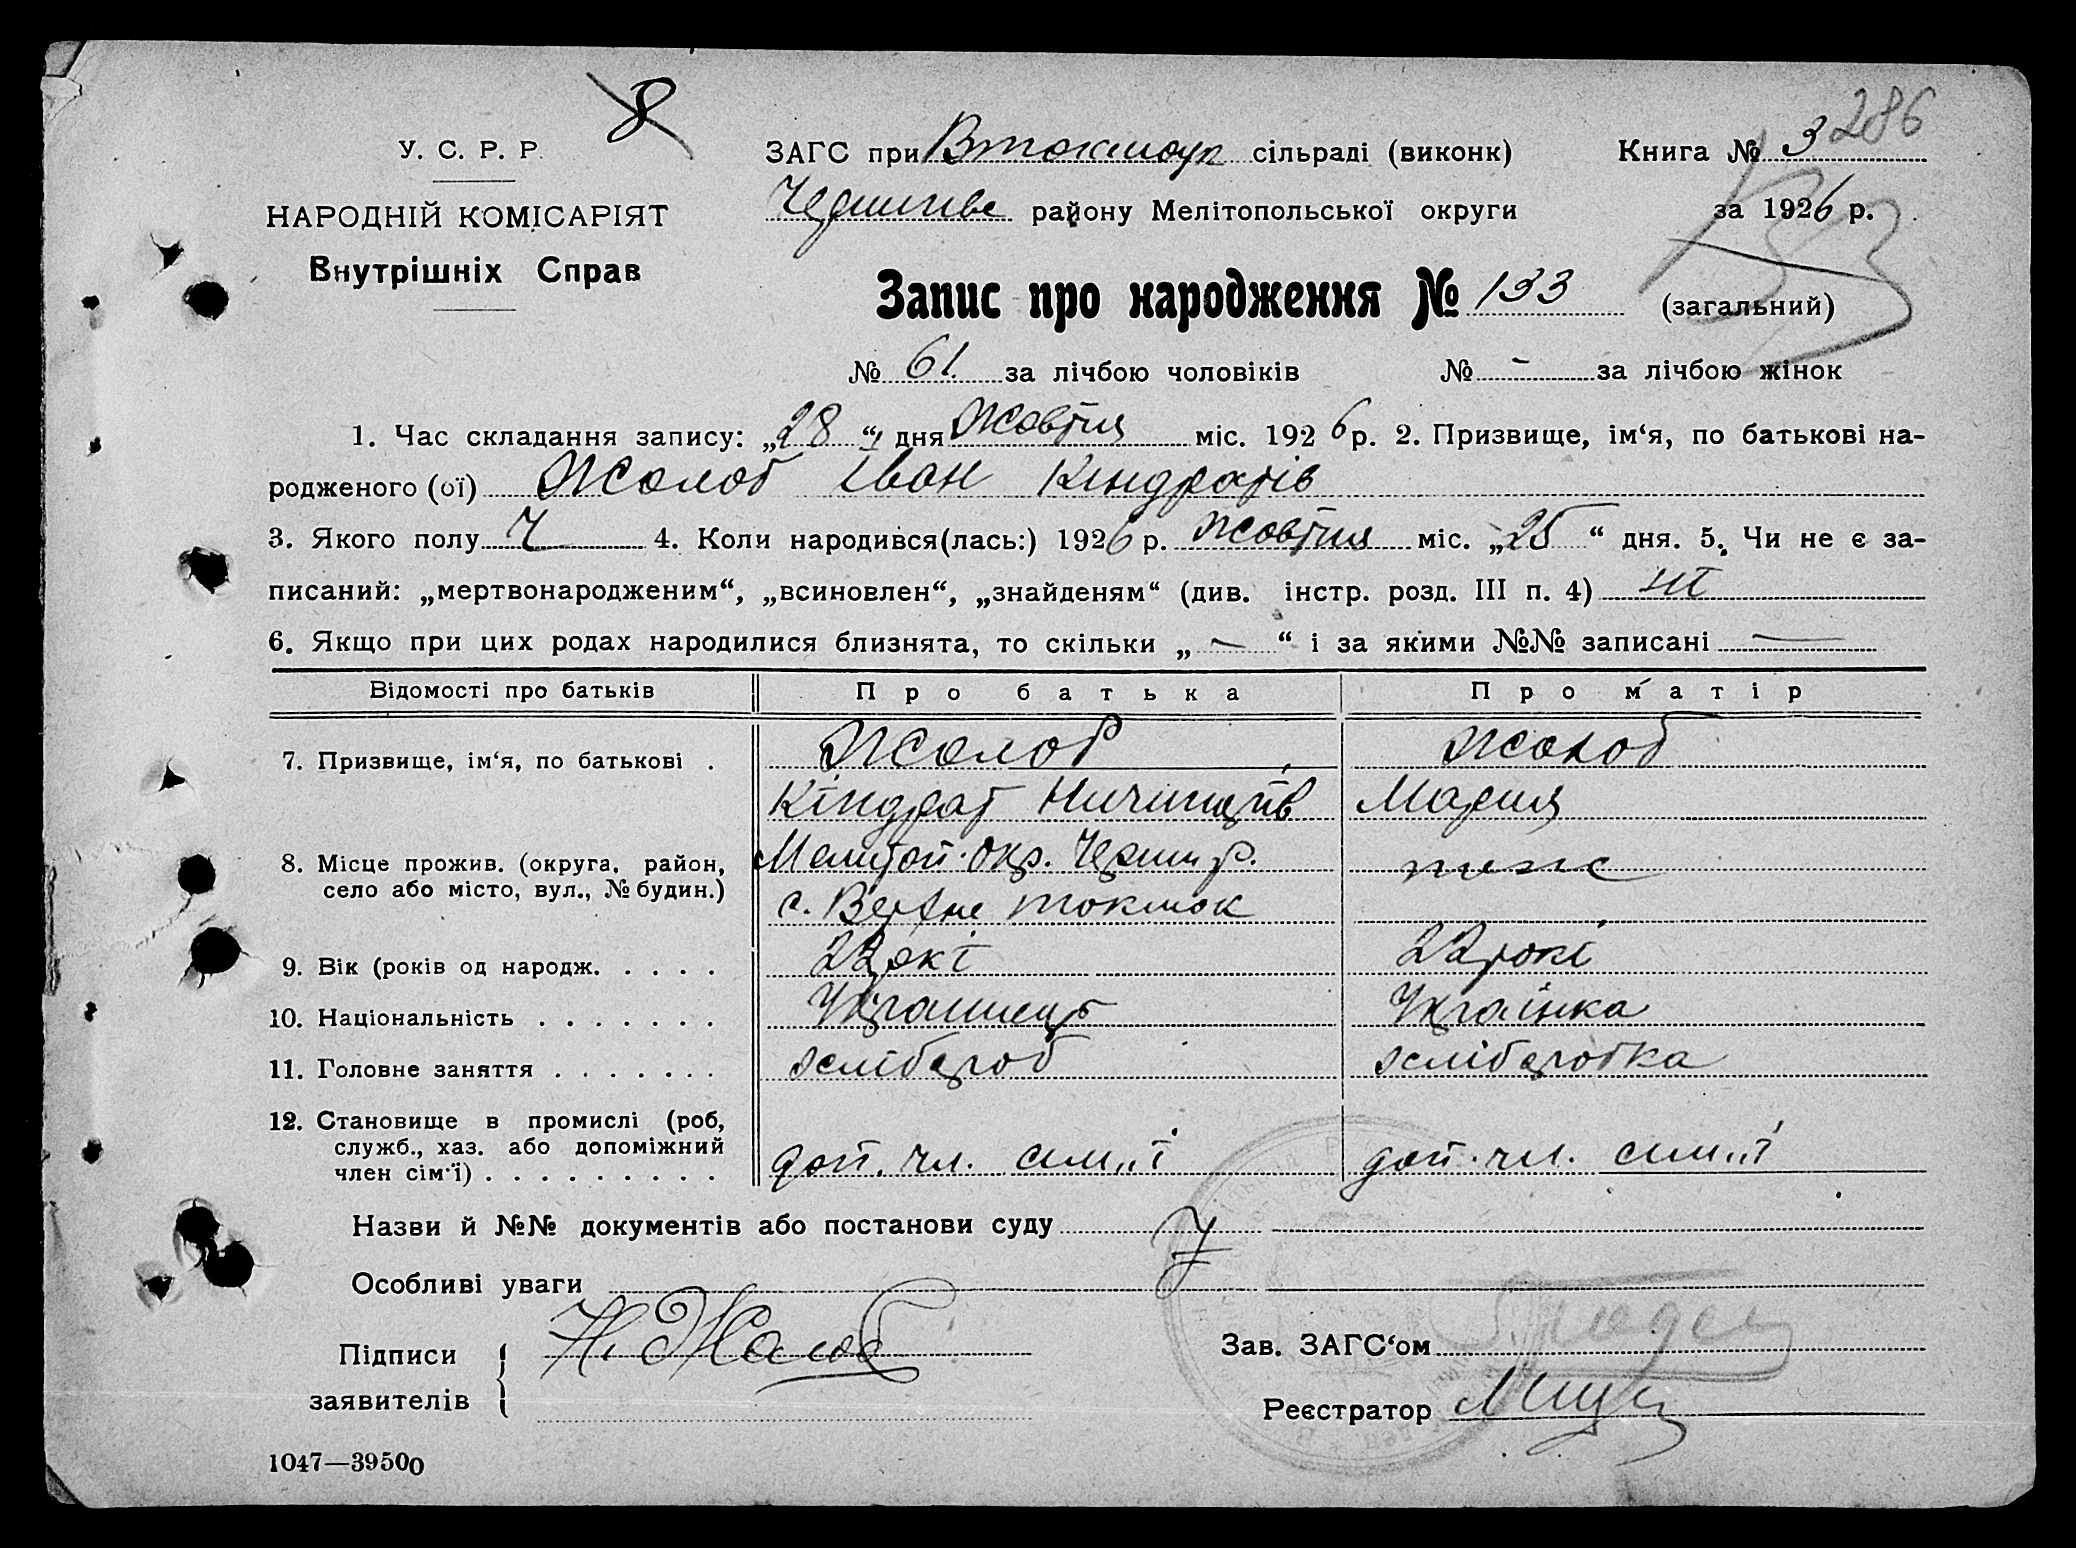 8
286
У. С. Р. Р.
ЗАГС при Втокмоцк сільраді (виконк) Книга № 3
НАРОДНІЙ КОМІСАРІЯТ
району Мелітопольської округи за 1926 р.
Внутрішніх Справ
Запис про народження № 133 (загальний)
№ 61. за лічбою чоловіків № - за лічбою жінок
1. Час складання запису: „28“ дня Жовтня міс. 1926 р. 2. Призвище, ім‘я, по батькові на-
родженого (ої) Жолоб Іван Кіндратів
3. Якого полу Ч 4. Коли народився(лась:) 1926 р. жовтня міс. „25“ дня. 5. Чи не є за-
писаний: „мертвонародженим“, „всиновлен“, „знайденям“ (див. інстр. розд. III п. 4) ні
6. Якщо при цих родах народилися близнята, то скільки „ — “ і за якими №№ записані —
Відомості про батьків Про батька Про матір
7. Призвище, ім‘я, по батькові . Жолоб Жолоб
Кіндрат Мария
8. Місце прожив. (округа, район, Мелитоп. окр. Черниг р. теж
село або місто, вул., № будин.) с. Верхне токмок
9. Вік (років од народж. . . . . 22 рокі 22 рокі
10. Національність . . . . . . . Украинець Українка
11. Головне заняття . . . . . . . хлібороб хліборобка
12. Становище в промислі (роб,
служб., хаз. або допоміжний
член сім‘ї) . . . . . . . . . доп. чл. сим„ї доп. чл. сим„ї
Назви й №№ документів або постанови суду
Особливі уваги
Підписи Н. Жолоб Зав. ЗАГС‘ом
заявителів Реєстратор
1047—39500